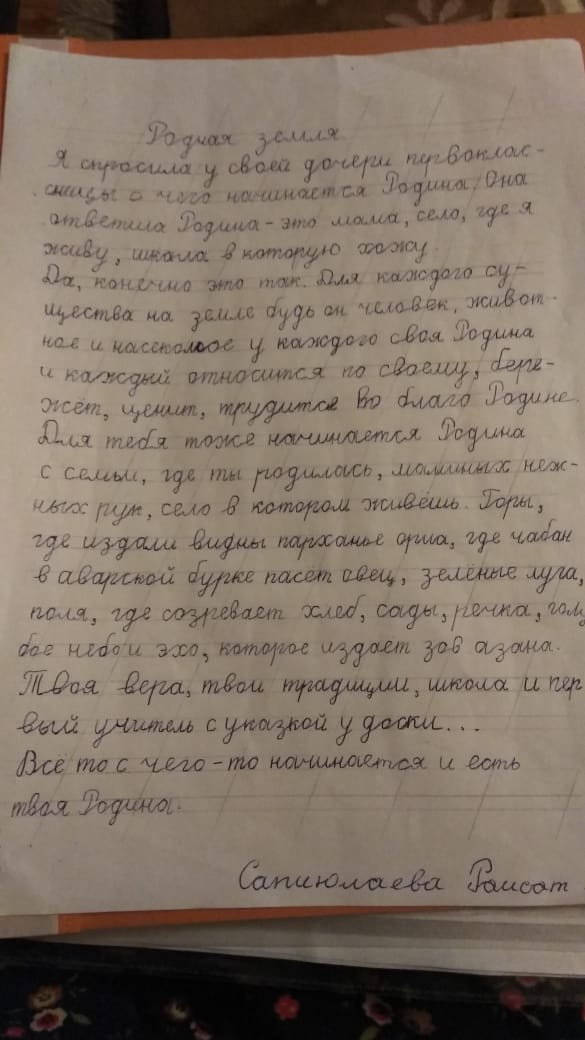 Родная земля
Я спросила у своей дочери первоклас-
сницы с чего начинается Родина. Она
ответила Родина - это мама, село, где я
живу, школа в которую хожу.
Да, конечно это так. Для каждого су-
щества на земле будь он человек, живот-
ное и насекомое у каждого своя Родина
и каждый относится по своему, бере-
жёт, ценит, трудится во благо Родине.
Для тебя тоже начинается Родина
с семьи, где ты родилась, маминых неж-
ных рук, село в котором живёшь. Горы,
где издали видны парханье орла, где чабан
в аварской бурке пасёт овец, зелёные луга,
поля, где созревает хлеб, сады, речка, голу
бое небо и эхо, которое издаёт зов азана.
Твоя вера, твои традиции, школа и пер
вый учитель с указкой у доски...
Всё то с чего-то начинается и есть
твоя Родина.
Сапиюлаева Раисат